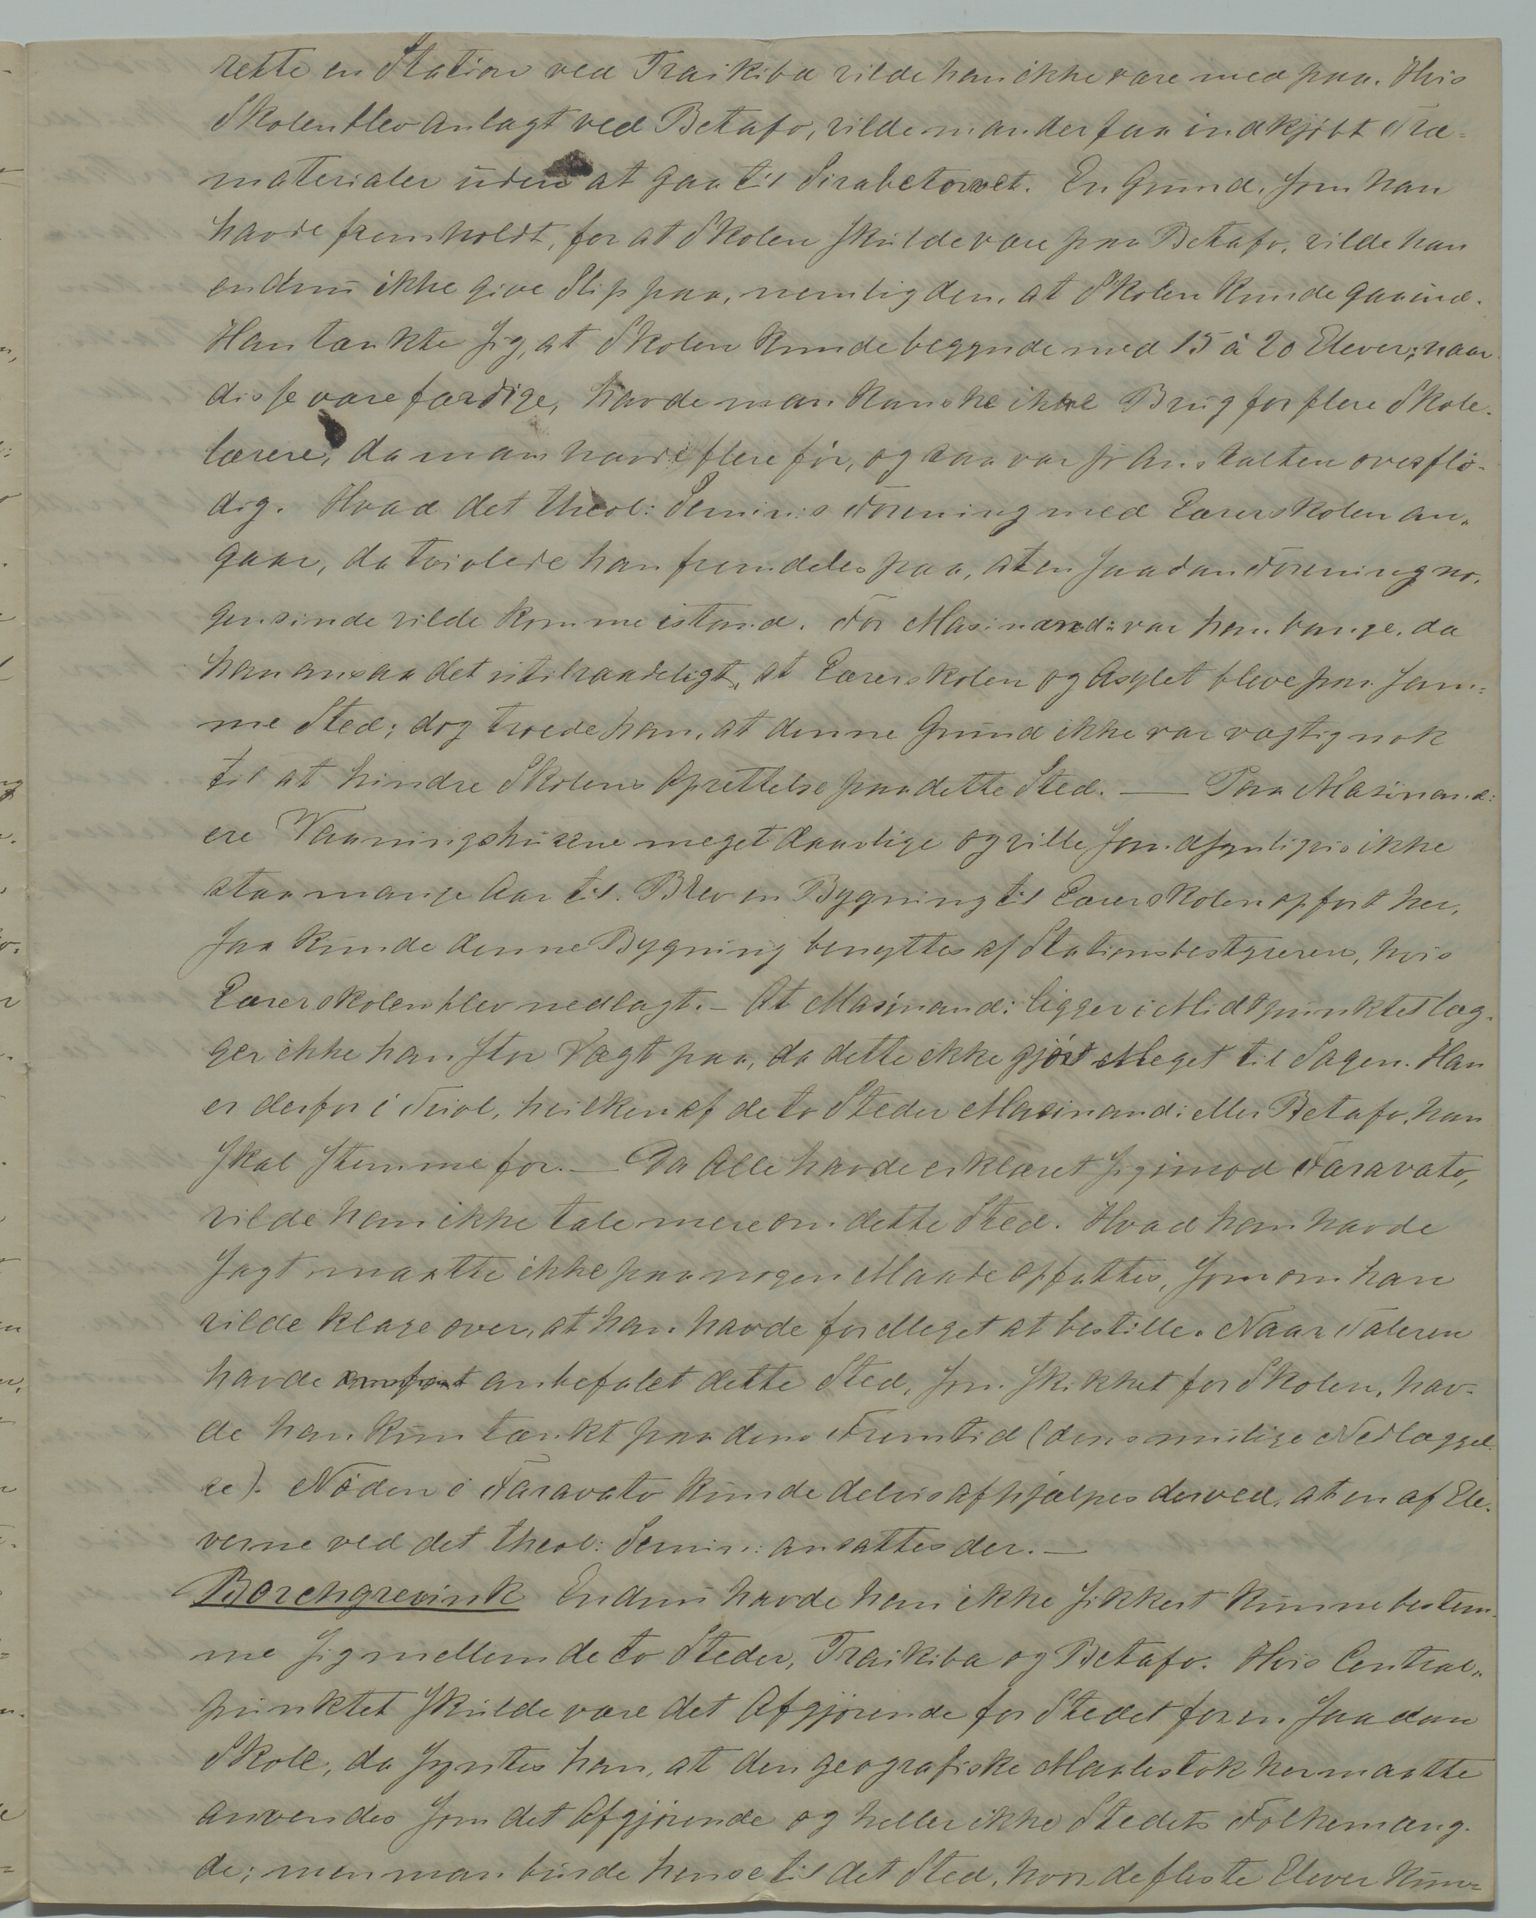 rette en Station ved Traikiba vilde han ikke være med paa. Hvis
Skolen blev anlagt ved Betafo, vilde man der faa indkjøbt Træ-
materialer uden at gaa til Sirabetorvet. En Grund, som han
havde fremholdt, for at Skolen skulde være paa Betafo, vilde han
endnu ikke give Slip paa, nemlig den, at Skolen kunde gaa ind.
Han tænkte sig, at Skolen kunde begynde med 15 à 20 Elever; naar
disse vare færdige, havde man kanske ikke Brug for flere Skole-
lærere, da man havde flere før, og saa var jo Anstalten overflø-
dig. Hvad det theol: Semin:s Forening med Lærerskolen an-
gaar, da tvivlede han fremdeles paa, at en saadan Forening no-
gensinde vilde komme istand. For Masinand: var han bange, da
han ansaa det utilraadeligt, at Lærerskolen og Asylet bleve paa sam-
me Sted; dog troede han, at denne Grund ikke var vægtig nok
til at hindre Skolens Oprettelse paa dette Sted. — Paa Masinand:
ere Vaaningshusene meget daarlige og ville sandsynligvis ikke
staa mange Aar til. Blev en Bygning til Lærerskolen opført her,
saa kunde denne Bygning benyttes af Stationsbestyreren, hvis
Lærerskolen blev nedlagt. – At Masinand: ligger i Midtpunktet læg-
ger ikke han stor Vægt paa, da dette ikke gjør Meget til Sagen. Han
er derfor i Tvivl, hvilken af de to Steder Masinand: eller Betafo, han
skal stemme for. — Da Alle havde erklæret sig imod Faravato,
vilde han ikke tale mere om dette Sted. Hvad han havde
sagt maatte ikke paa nogen Maade opfattes, som om han
vilde klage over, at han havde for Meget at bestille. Naar Taleren
havde anbefalet dette Sted, som skikket for Skolen, hav-
de han kun tænkt paa dens Fremtid (dens mulige Nedlæggel-
se). Nøden i Faravato kunde delvis afhjælpes derved, at en af Ele-
verne ved det theol: Semin: ansattes der. —
Borchgrevink Endnu havde han ikke sikkert kunne bestem-
me sig mellem de to Steder, Traikiba og Betafo. Hvis Central-
punktet skulde være det Afgjørende for Stedet for en saadan
Skole, da syntes han, at den geografiske Maalestok her maatte
anvendes som det Afgjørende og heller ikke Stedets Folkemæng-
de; men man burde hense til det Sted, hvor de fleste Elever kun-